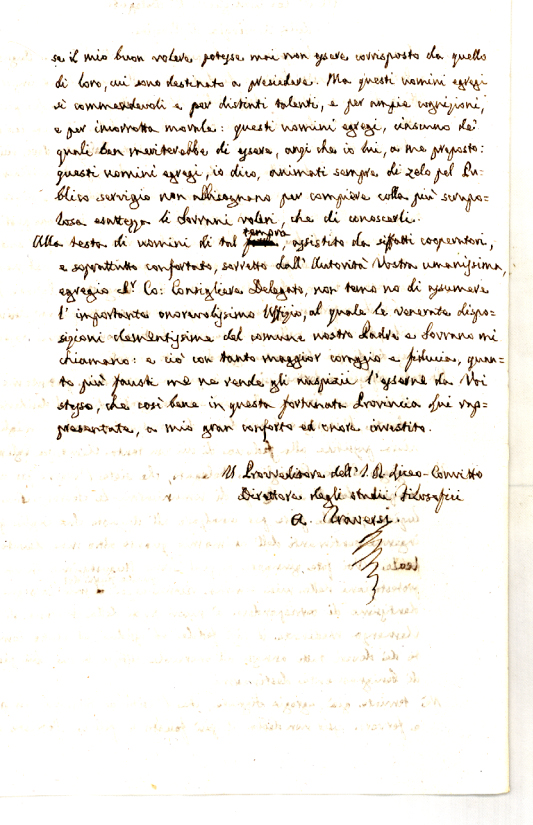 se il mio buon volere potesse mai non essere corrisposto da quello
di loro, cui sono destinato a presiedere. Ma questi uomini egregi
sì commendevoli e per distinti talenti, e per ampie cognizioni,
e per incorrotta morale: questi uomini egregi, ciascuno dei
quali ben meriterebbe di essere, anzi che io lui, a me preposto:
questi uomini egregi, io dico, animati sempre di zelo pel Pu=
blico servigio non abbisognano per compiere colla più scrupo=
losa esattezza li Sovrani voleri, che di conoscerli.
Alla testa di uomini di tal tempra, assistito da siffatti cooperatori,
e soprattutto confortato, sorretto dall' Autorità Vostra umanissima,
egregio Sr Co: Consigliere Delegato, non temo no di assumere
l' importante onorevolissimo Uffizio, al quale le venerate dispo=
sizioni clementissime del comune nostro Padre e Sovrano mi
chiamano: e ciò con tanto maggior coraggio e fiducia, quan=
to più fausti me ne rende gli auspicii l' esserne da Voi
stesso, che così bene in questa fortunata Provincia Lui rap=
presentate, a mio gran conforto ed onore investito.
Il Provveditore dell' I. R. Liceo-Convitto
Direttore degli studii Filosofici
A Traversi